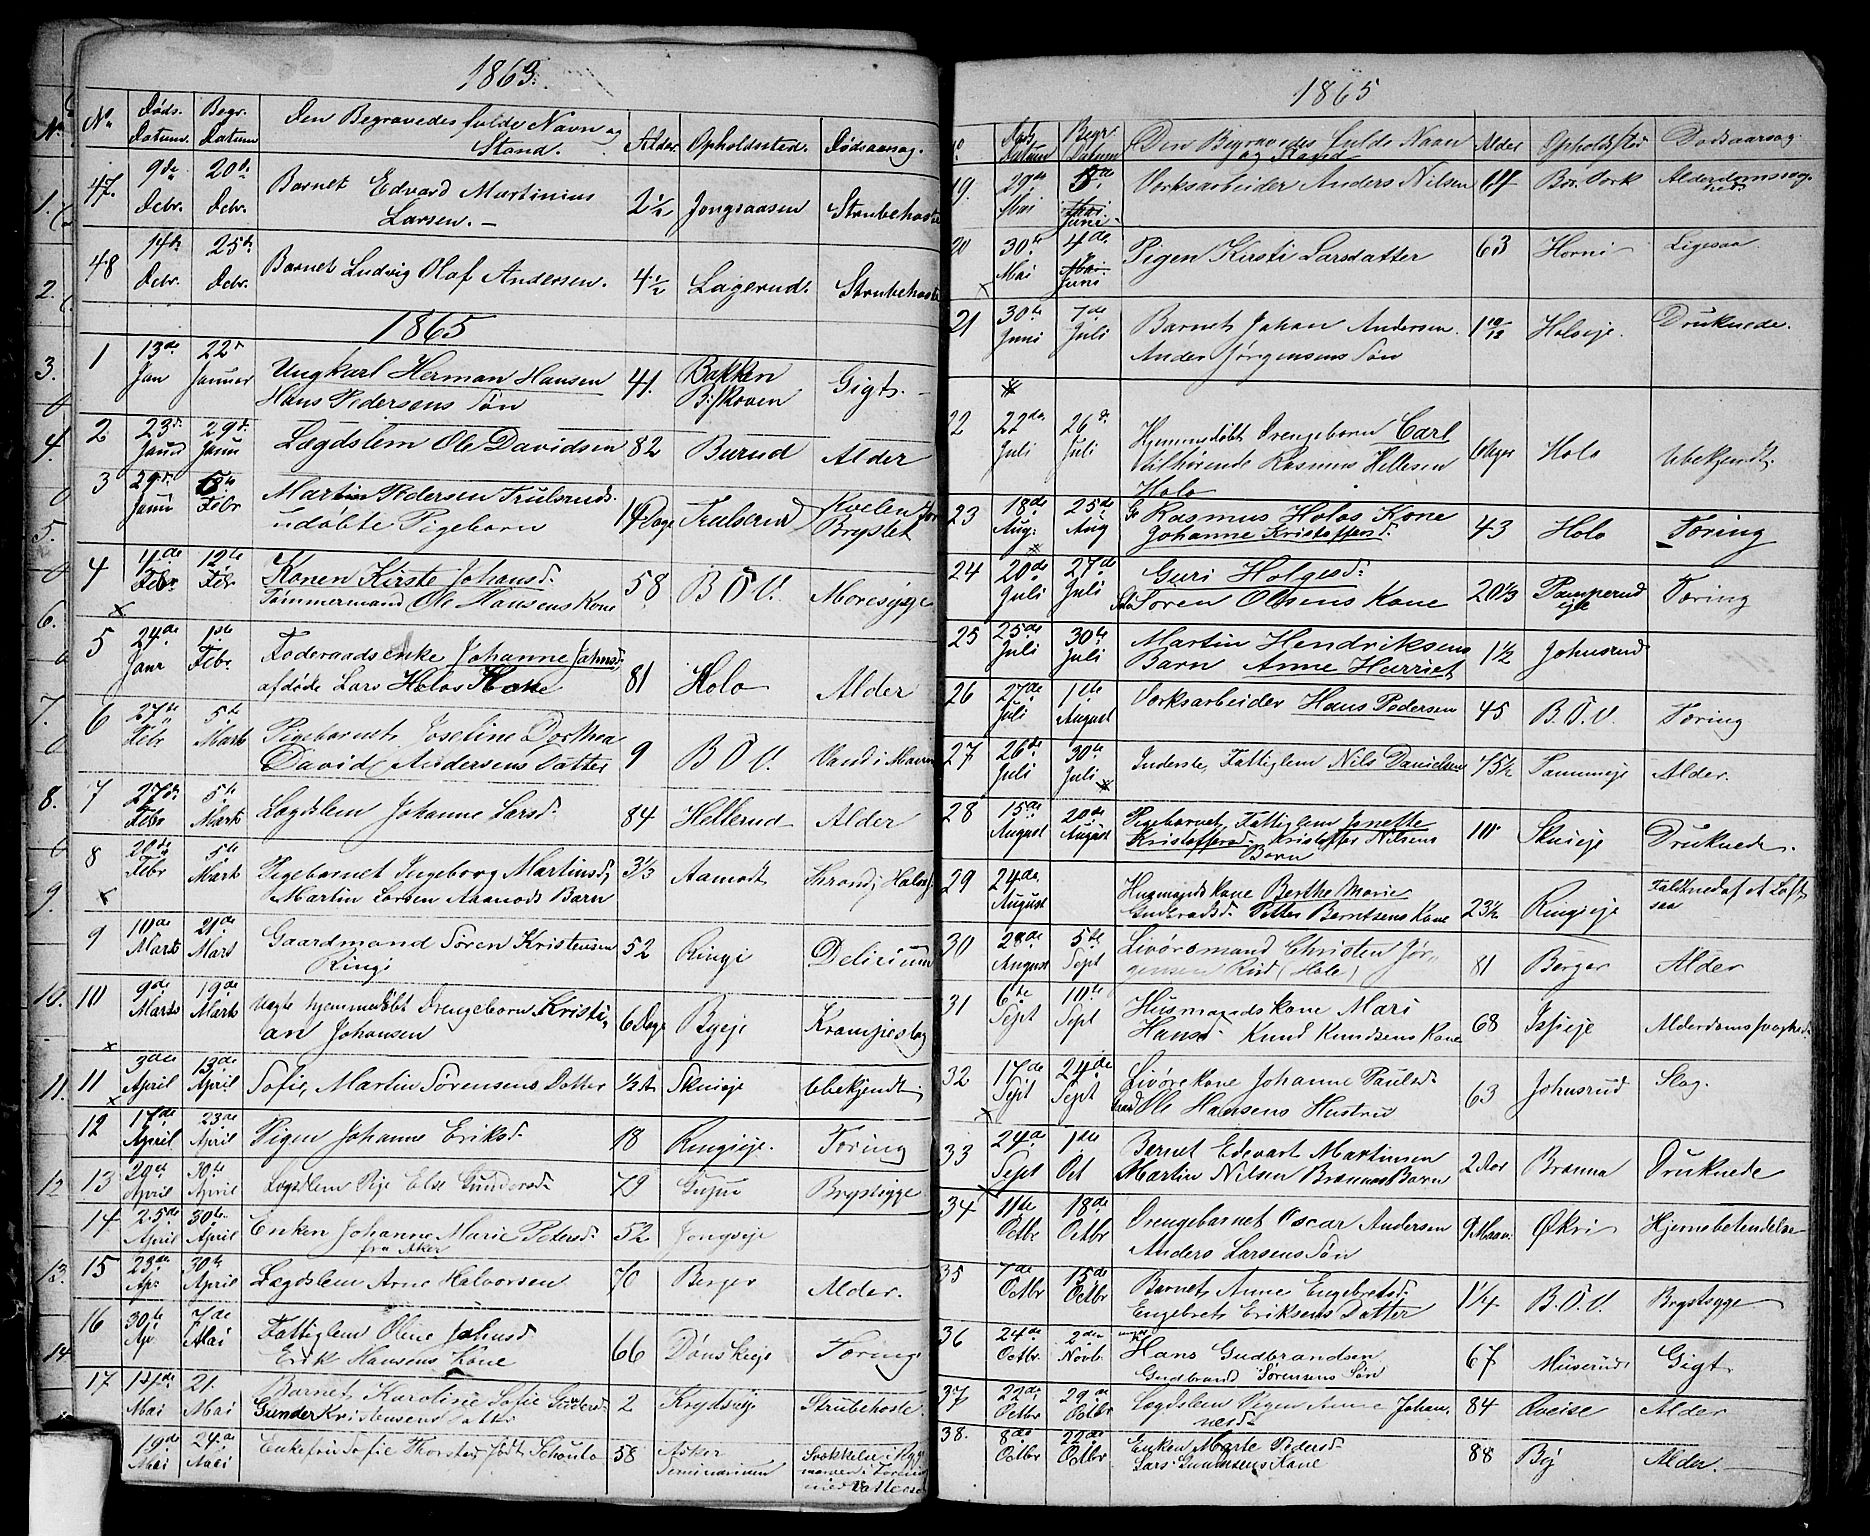 1863.
No Døds Datum. Begr. Datum Den Begravedes fulde Navn og Stand. Alder Opholdssted. Dødsaarsag.
47. 9de Decbr. 20de Decbr. Barnet Edvard Martinius
Larsen. — 2½ Jongsaasen Strubehoste
48 14de Decbr. 25de Decbr. Barnet Ludvig Olaf Andersen. 4½ Lagerud. Strubehoste
1865
1 13de Jan 22d Januar Ungkarl Herman Hansen
Hans Pedersens Søn 41. Bakken B: skoven Gigt. —
2 23d Januar 29d Janu Lægdslem Ole Davidsen 82 Burud Alder
3 29d Janu 5te Febr Martin Pedersen Trulsruds
udøbte Pigebarn 14 Dage Trulsrud Kvelen for Brystet
4 4de Febr 12te Febr. Konen Kirste Johansd.
Tømmermand Ole Hansens Kone 58 B. O. V. Moresyge
5 24de Janr 1ste Febr. Føderaadsenke Johanne Johnsd.
afdøde Lars Holos Kone 81 Holo Alder
6 27de Febr 5te Marts Pigebarnet Josefine Dorthea
David Andersens Datter 9 B. O. V. Vand i Maven
7 27de Febr 5te Marts Lægdslem Johanne Larsd. 84 Hellerud Alder
8 20de Febr 5te Marts Pigebarnet Ingeborg Martinsd,
Martin Larsen Aamods Barn 3⅓ Aamodt
9 10de Marts 21de Mars Gaardmand Søren Kristensen
Ringi 52 Ringi Delirium
10 9de Marts 19de Marts Uægte hjemmedøbt Drengebarn Kristi-
an Johansen 6 Dage Byeje Krampeslag
11 3die April 13de April Sofie, Martin Sørensens Datter ½ A Skuieje Ubekjendt.
12 17de April 23de April Pigen Johanne Eriksd. 18 Ringieje. Tæring
13 20de April 30te April Lægdslem Pige Else Gundersd. 79 Brystsyge
14. 25de April 30te April Enken Johanne Marie Petersd.
fra Asker 52 Jongseje
15 23de Apr 30te April Lægdslem Arne Halvorsen 70 Berger Alder.
16 30te Apr 7de Mai Fattiglem Oline Johnsd
Erik Hansens Kone 66 Dønskieje Tæring
17 Mai 21. Mai Barnet Karoline Sofie Gundersd.
Gunder Kristensens Datter 2 Krydsbyeje Strubehoste.
19de Mai 24de Mai Enkefru Sofie født Schoulo 58 Asker Seminarium
1865
No Døds Datum Begr. Datum Den Begravedes fulde Navn og Stand Alder Opholdssted Dødsaarsag.
19. 29de Mai 5te Juni Værksarbeider Anders Nilsen 67 Bær. Værk Alderdomssvaghed
20 30te Mai 4de Juni Pigen Kirsti Larsdatter 63 Horni Ligesaa
21 30te Juni 7de Juli Barnet Johan Andersen.
Anders Jørgensens Søn 1 10/12 Holoeje. Druknede.
22 22de Juli 26de Juli Hjemmedøbt Drengebarn Carl
tilhørende Rasmus Hellesen
Holo 6 Uger Holo Ubekjendt.
23 18de Aug: 25de Aug Rasmus Holos Kone
Johanne Kristoffersd. 43 Holo Tæring
24 20de Juli 27de Juli Guri Holgesd.
Søren Olsens Kone 20⅓ Pamperud eje Tæring
25 25de Juli 30te Juli Martin Hendriksens
Barn Anne Harriet 1½ Johnsrud
26 27de Juli 1ste August Værksarbeider Hans Pedersen 45 B. O. V. Tæring
27 26de Juli 30te Juli Inderste, Fattiglem Nils Danielsen 75½ Tammeeje Alder.
28 15de August 20de August Pigebarnet, Fattiglem Janette
Kristoffersd. Kristoffer Nilsens
Barn 10 Skuieje Druknede.
29 24de August Husmandskone Berthe Marie
Gulbrandsd. Petter Berntsens Kone 23½ Ringieje Faldt ned af et Loft
30 29de August 5te Sept Livøresmand Christen Jør-
gensen Rud (Holo) 81 Berger Alder
31 6te Sept 10de Sept Husmandskone Mari
Hansd. Knud Knudsens Kone 68 Isieje Alderdomssvaghed.
32 17de Sept 24de Sept Livørekone Johanne Paulsd.
Ole Hansens Hustru 63 Johnsrud Slag.
33 24de Sept 1ste Oct Barnet Edevart Martinsen
Martin Nilsen Brænnas Barn 2 Aar Brænna Druknede
34 11te Octbr 18de Octbr Drengebarnet Oscar Andersen
Anders Larsens Søn 9 Maan. Økri Hjernebetændelse
35 7de Octbr 15de Octbr Barnet Anne Engebretsd.
Engebret Eriksens Datter 1¼ B. O. V. Brystsyge
36 24de Octbr. 2den Novb. Hans Gudbrandsen
Gudbrand Sørensens Søn 67 Muserud Gigt
37 22de Octbr 29de Octbr Lægdslem Pigen Anne Johan-
nesd. 84 Qveise Alder
38. 8de Octbr 22de Octbr Enken Marte Pedersd.
Lars Gundersens Kone 88 Bj Alder.